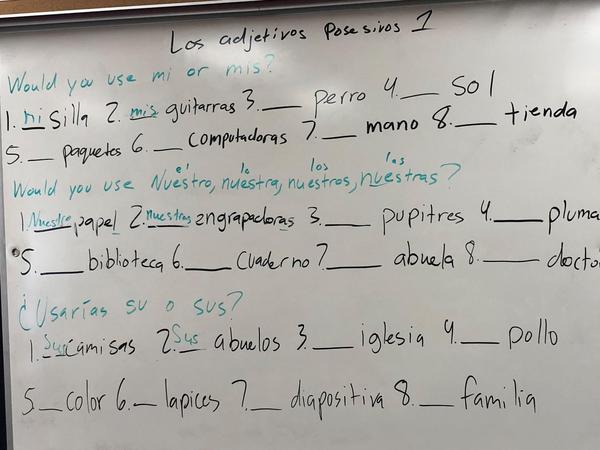 Los adjetivos posesivos 1
Would you use mi or mis?
1. mi silla 2. mis guitarras 3. ___ perro 4. ___ sol
5. ___ paquetes 6. ___ computadoras 7. ___ mano 8. ___ tienda
el la los las
Would you use Nuestro, nuestra, nuestros, nuestras?
1. Nuestro papel 2. nuestras engrapadoras 3. ___ pupitres 4. ___ pluma
5. ___ biblioteca 6. ___ cuaderno 7. ___ abuela 8. ___ docto
¿Usarías su o sus?
1. Sus camisas 2. Sus abuelos 3. ___ iglesia 4. ___ pollo
5 ___ color 6. ___ lapices 7. ___ diapositiva 8. ___ familia